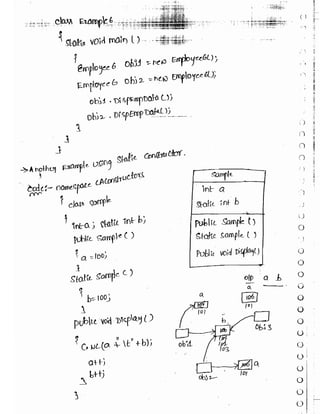 class Example6
{
static void main ( )
{
Employee6 Obj1 = new Employee6();
Employee6 Obj2 = new Employee6();
Obj1 . DispEmpData();
Obj2 . DispEmpData();
}
}
}
→ Another Example using Static Constructor.
Code:- namespace CAConstructors
{
class Sample
{
int a ; static int b;
Public Sample ( )
{
a = 100;
}
Static Sample ( )
{
b = 100;
}
public void Display ( )
{
C. WL (a + "\t" + b);
a++;
b++;
}
}
Sample
int a
Static int b
Public Sample ( )
Static Sample ( )
Public void Display()
o/p a b
a
100
101
a
100
101
b
100
101
103
obj1
obj3
a
101
obj2